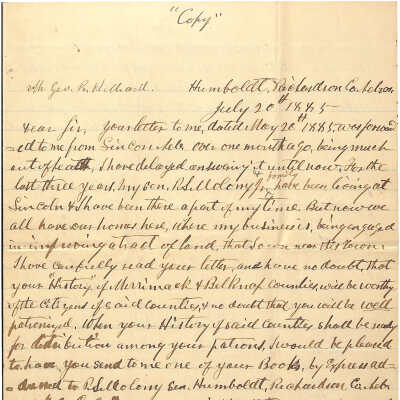 "Copy"
Mr Geo. R. Humboldt, Richardson Co. Nebr.
July 20th 1885
Dear Sir, your letter to me, dated May 20th 1885, was forward
-ed to me from Lincoln Nebr over one month ago, being much
out of health, I have delayed answering it until now. For the
last three years, my son, Jr & family have been living at
Lincoln & I have been there a part of my time. But now we
all have our homes here, where my business is, being engaged
in improving a tract of land, that I own near this Town.
I have carefully read your letter, and have no doubt, that
your "History" of Merrimack & Belknap Counties, will be worthy
of the Citizens of said Counties, & no doubt that you will be well
patronized. When your History of said Counties shall be ready
for distribution among your patrons, I would be pleased
to have you send to me one of your Books, by Express ad-
-dressed to Sen. Humboldt, Richardson Co. Nebr